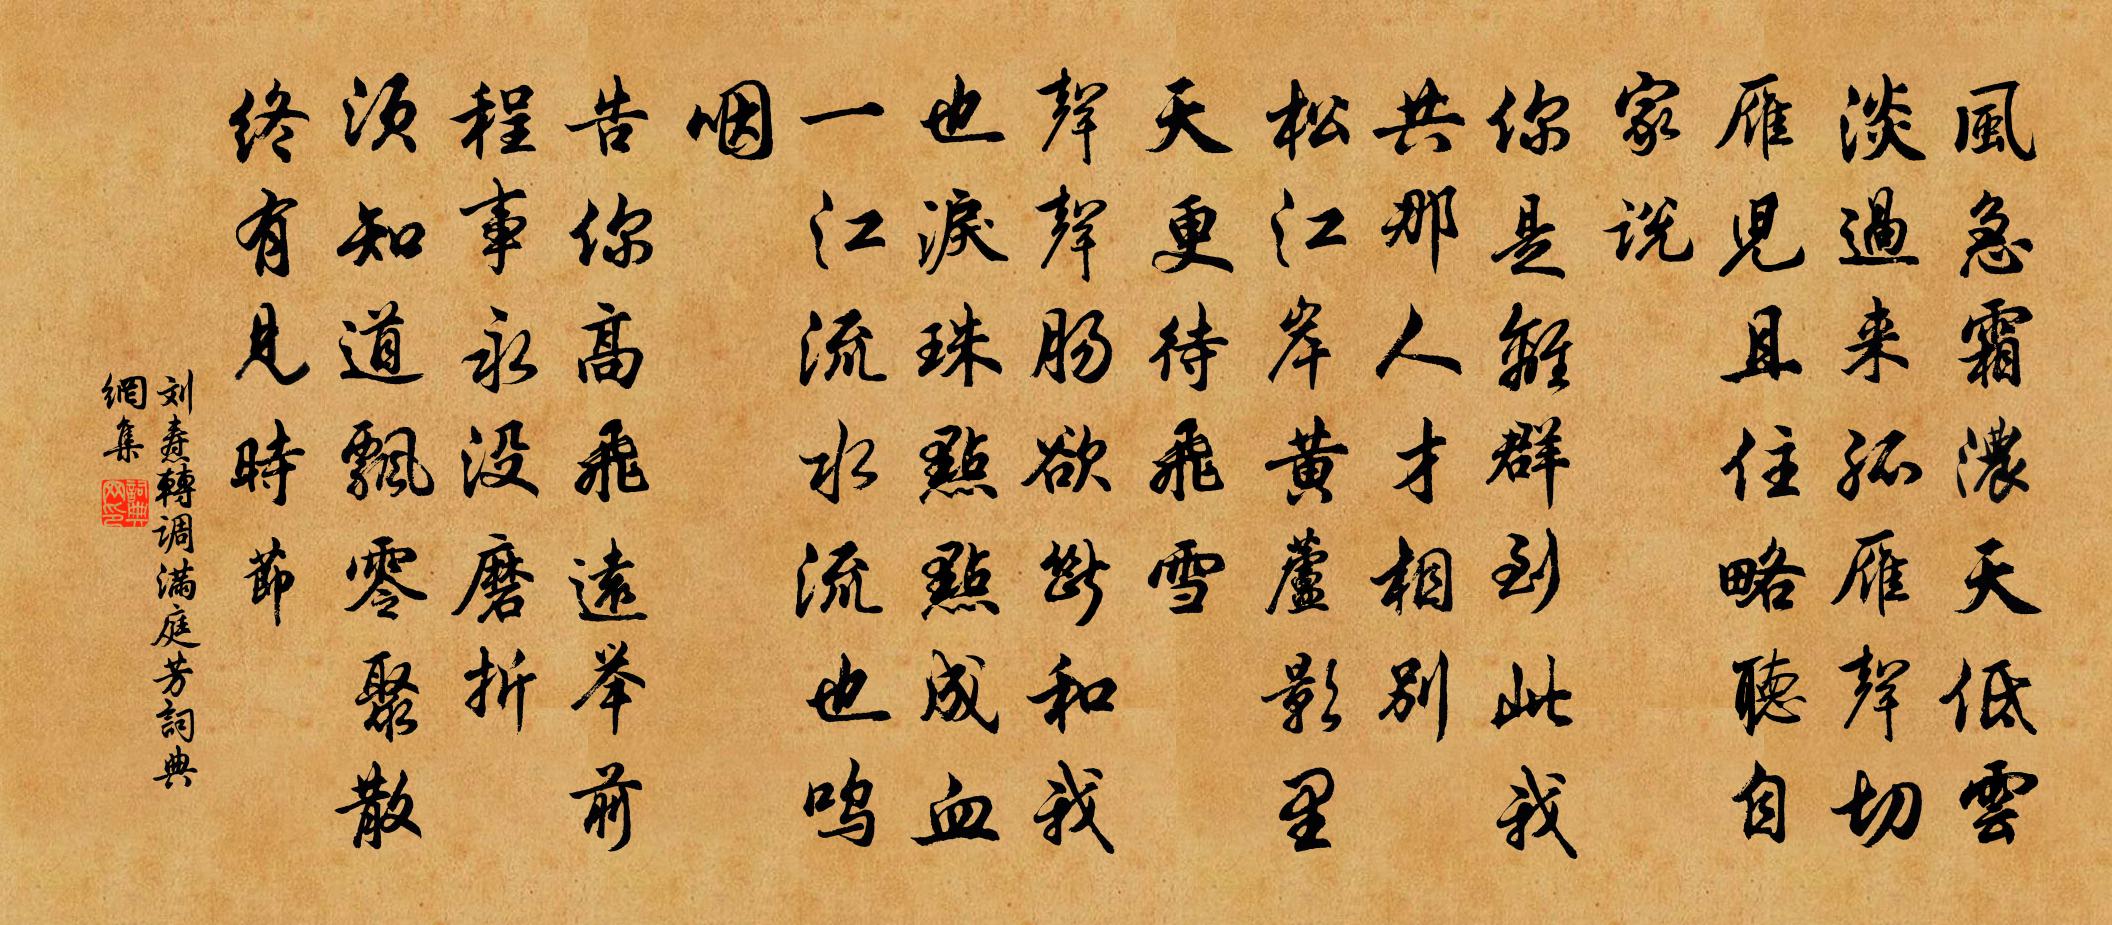 風急霜濃天低雲
淡過来孤雁聲切
雁児且住略聽自
家説
你是離群到此我
共那人才相别
松江岸黄蘆影里
天更待飛雪
聲聲腸欲斷和我
也淚珠點點成血
一江流水流也嗚
咽
告你高飛遠举前
程事永没磨折
須知道飄零聚散
終有見時節
刘燾轉調滿庭芳詞典
網集
詞典網印